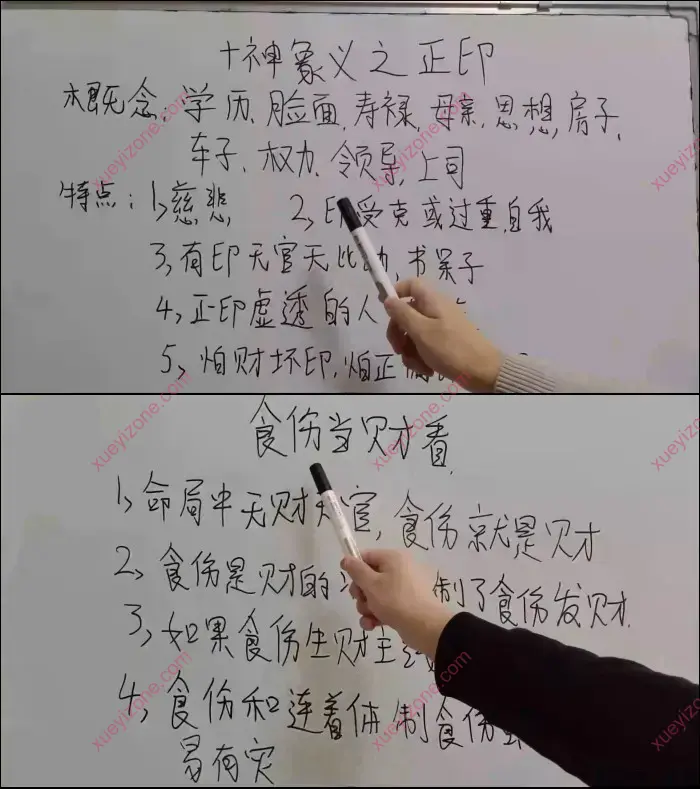 十神象义之正印
概念:学历、脸面,寿禄,母亲,思想,房子,
车子、权力、领导,上司
特点:1,慈悲 2,印受克或过重,自我
3,有印无官无比劫,书呆子
4,正印虚透的人
5,怕财坏印,怕正
食伤当财看
1,命局中无财无官,食伤就是财
2,食伤是财的 制了食伤发财
3,如果食伤生财主
4,食伤和连着体制食伤
易有灾
xueyizone.com